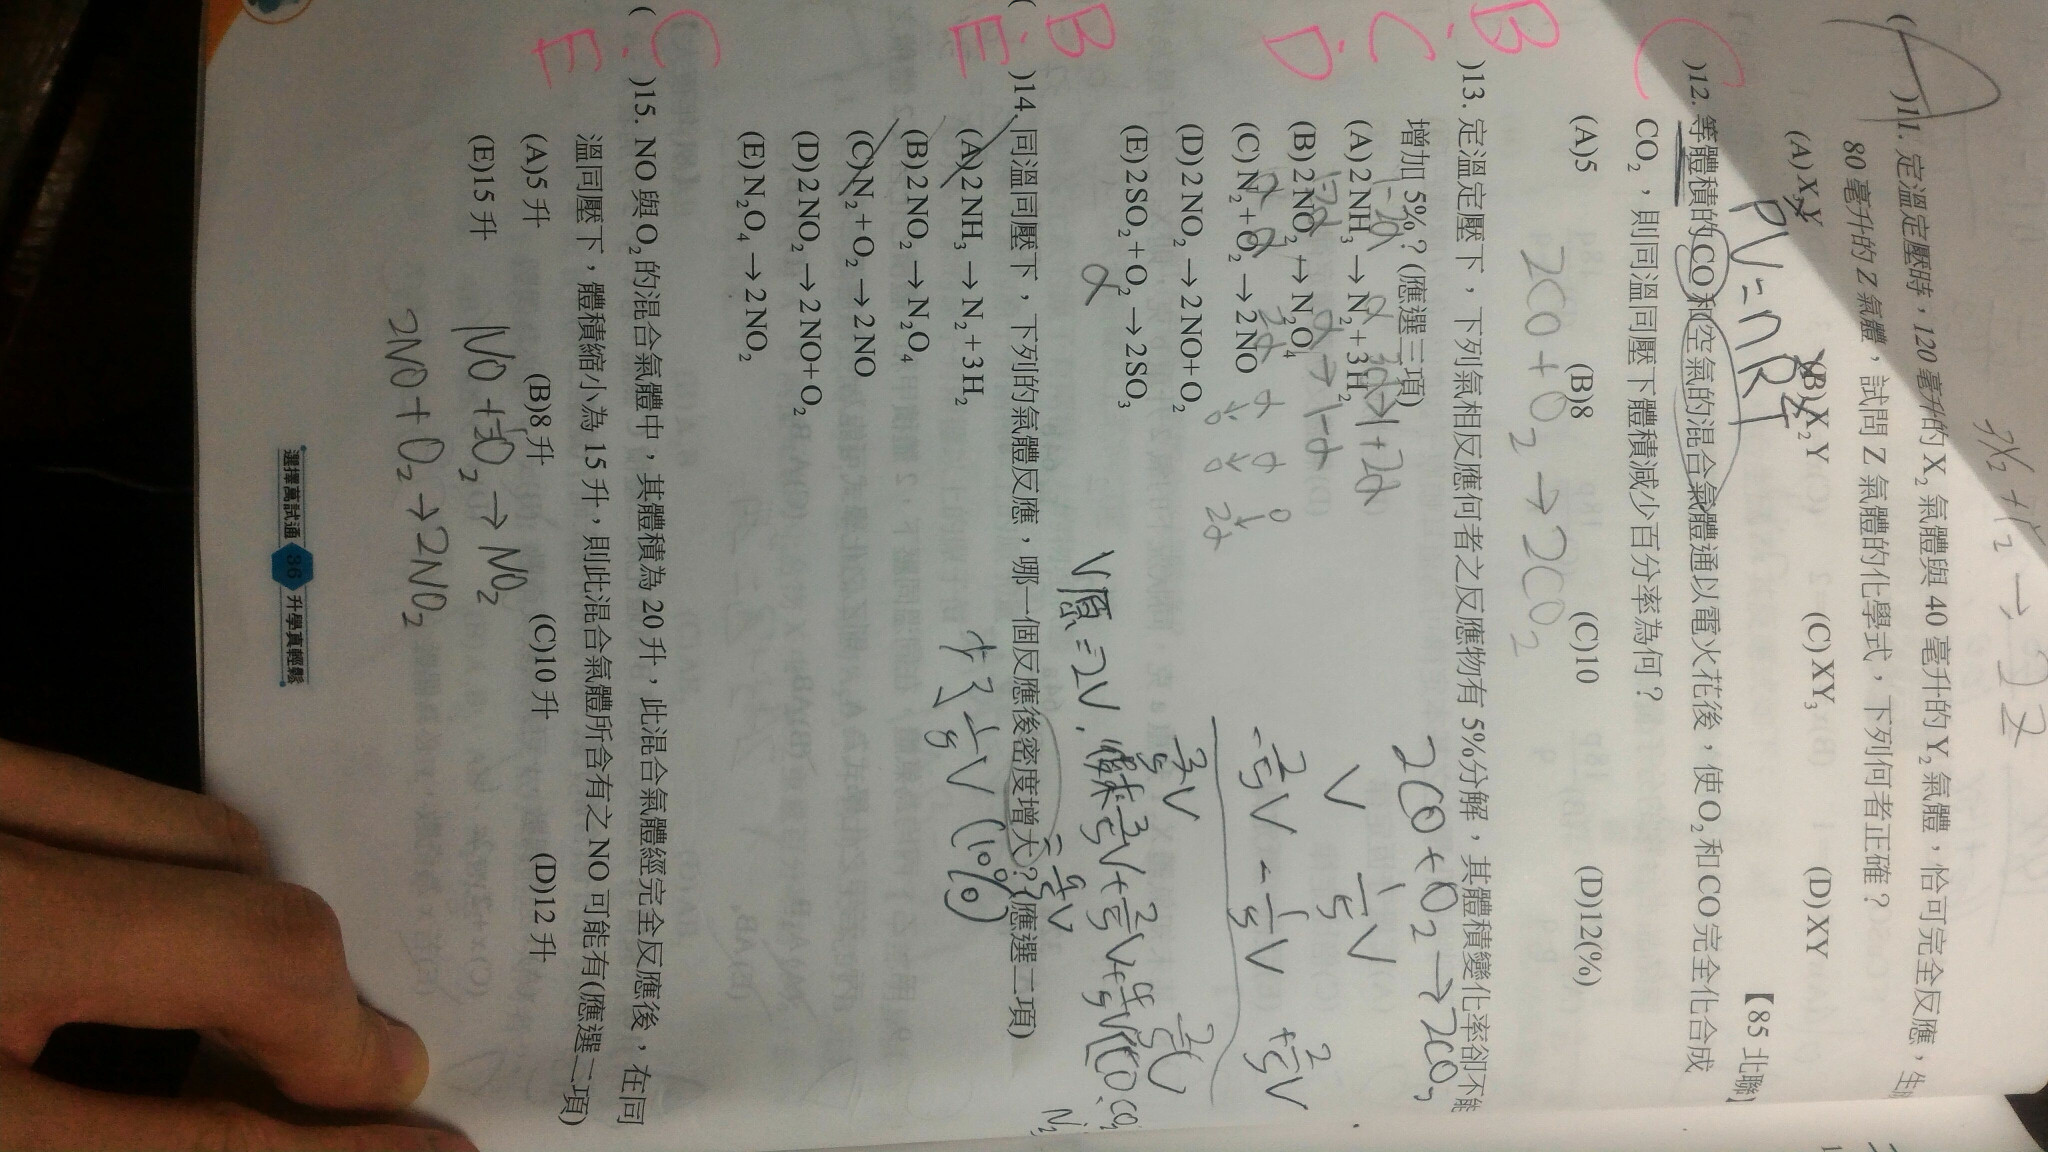 ( A )11. 定溫定壓時，120 毫升的 X₂ 氣體與 40 毫升的 Y₂ 氣體，恰可完全反應，生
80 毫升的 Z 氣體，試問 Z 氣體的化學式，下列何者正確？
(A) X₃Y (B) X₂Y (C) XY₃ (D) XY 【85 北聯】
PV=nRT
C )12. 等體積的CO和空氣的混合氣體通以電火花後，使O₂和CO完全化合成
CO₂，則同溫同壓下體積減少百分率為何？
(A)5 (B)8 (C)10 (D)12(%)
2CO+O₂→2CO₂
2CO+O₂→2CO₂
V 1/5V
-2/5V -1/5V +2/5V
3/5V 2/5V
V原=2V,
=9/5V
1/5V (10%)
B
C
D
)13. 定溫定壓下，下列氣相反應何者之反應物有 5%分解，其體積變化率卻不能
增加 5%？(應選三項)
(A) 2 NH₃ → N₂ + 3H₂
(B) 2 NO₂ → N₂O₄
(C) N₂ + O₂ → 2 NO
(D) 2 NO₂ → 2 NO+O₂
(E) 2SO₂ + O₂ → 2SO₃
→1+2α
→1-α
α
B
E
( )14. 同溫同壓下，下列的氣體反應，哪一個反應後密度增大？(應選二項)
(A) 2 NH₃ → N₂ + 3 H₂
(B) 2 NO₂ → N₂O₄
(C) N₂ + O₂ → 2 NO
(D) 2 NO₂ → 2 NO+O₂
(E) N₂O₄ → 2 NO₂
C
E
( )15. NO 與 O₂ 的混合氣體中，其體積為 20 升，此混合氣體經完全反應後，在同
溫同壓下，體積縮小為 15 升，則此混合氣體所含有之 NO 可能有(應選二項)
(A)5 升 (B)8 升 (C)10 升 (D)12 升
(E)15 升
NO+½O₂→NO₂
2NO+O₂→2NO₂
選擇萬試通 36 升學真輕鬆